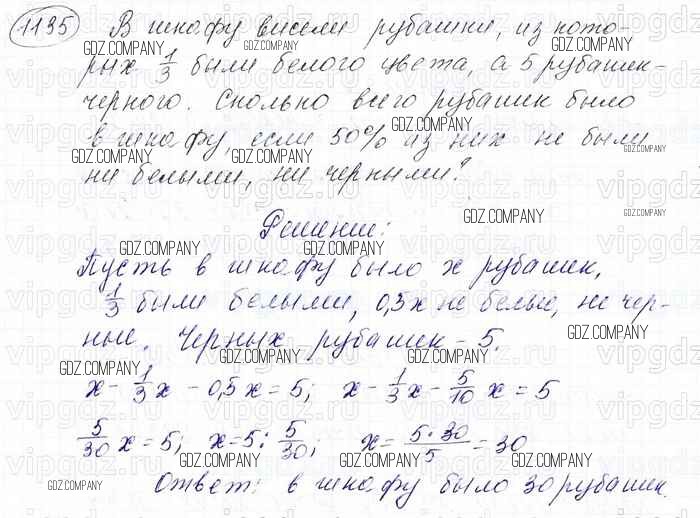 1135) В шкафу висели рубашки, из кото-
рых 1/3 были белого цвета, а 5 рубашек -
черного. Сколько всего рубашек было
в шкафу, если 50% из них не были
ни белыми, ни черными?
Решение:
Пусть в шкафу было x рубашек,
1/3 были белыми, 0,5x не белые, не чер-
ные. Черных рубашек - 5.
x - 1/3 x - 0,5x = 5; x - 1/3 x - 5/10 x = 5
5/30 x = 5; x = 5 : 5/30; x = 5·30/5 = 30
Ответ: в шкафу было 30 рубашек.
GDZ.COMPANY
vipgdz.ru